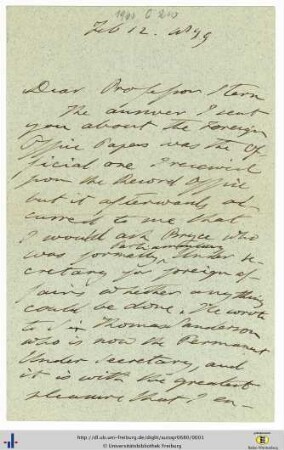 Feb 12.
Dear Professor Stern
The answer I sent
you about the Foreign
Office Papers was the Of
ficial one I received
from the Record Office
but it afterwards oc
curred to me that
I would ask Bryce who
Parliamentary
was formerly Under Se
cretary for foreign af
fairs whether anything
could be done. He wrote
to Sir Thomas Sanderson
who is now the Permanent
Under Secretary, and
it is with the greatest
pleasure that I en-
http://dl.ub.uni-freiburg.de/diglit/autogr0680/0001
© Universitätsbibliothek Freiburg